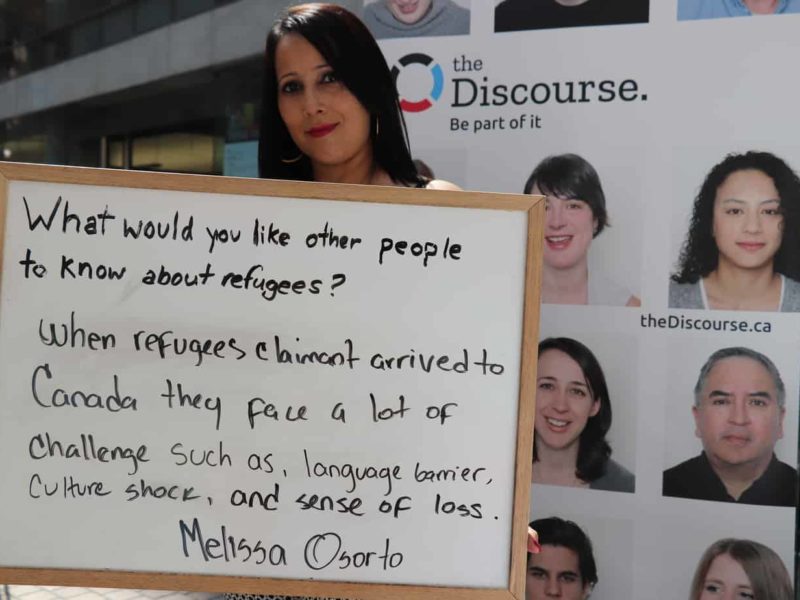 the
Discourse.
Be part of it
theDiscourse.ca
What would you like other people
to know about refugees?
When refugees claimant arrived to
Canada they face a lot of
challenge such as, language barrier,
Culture shock, and sense of loss.
Melissa Osorto